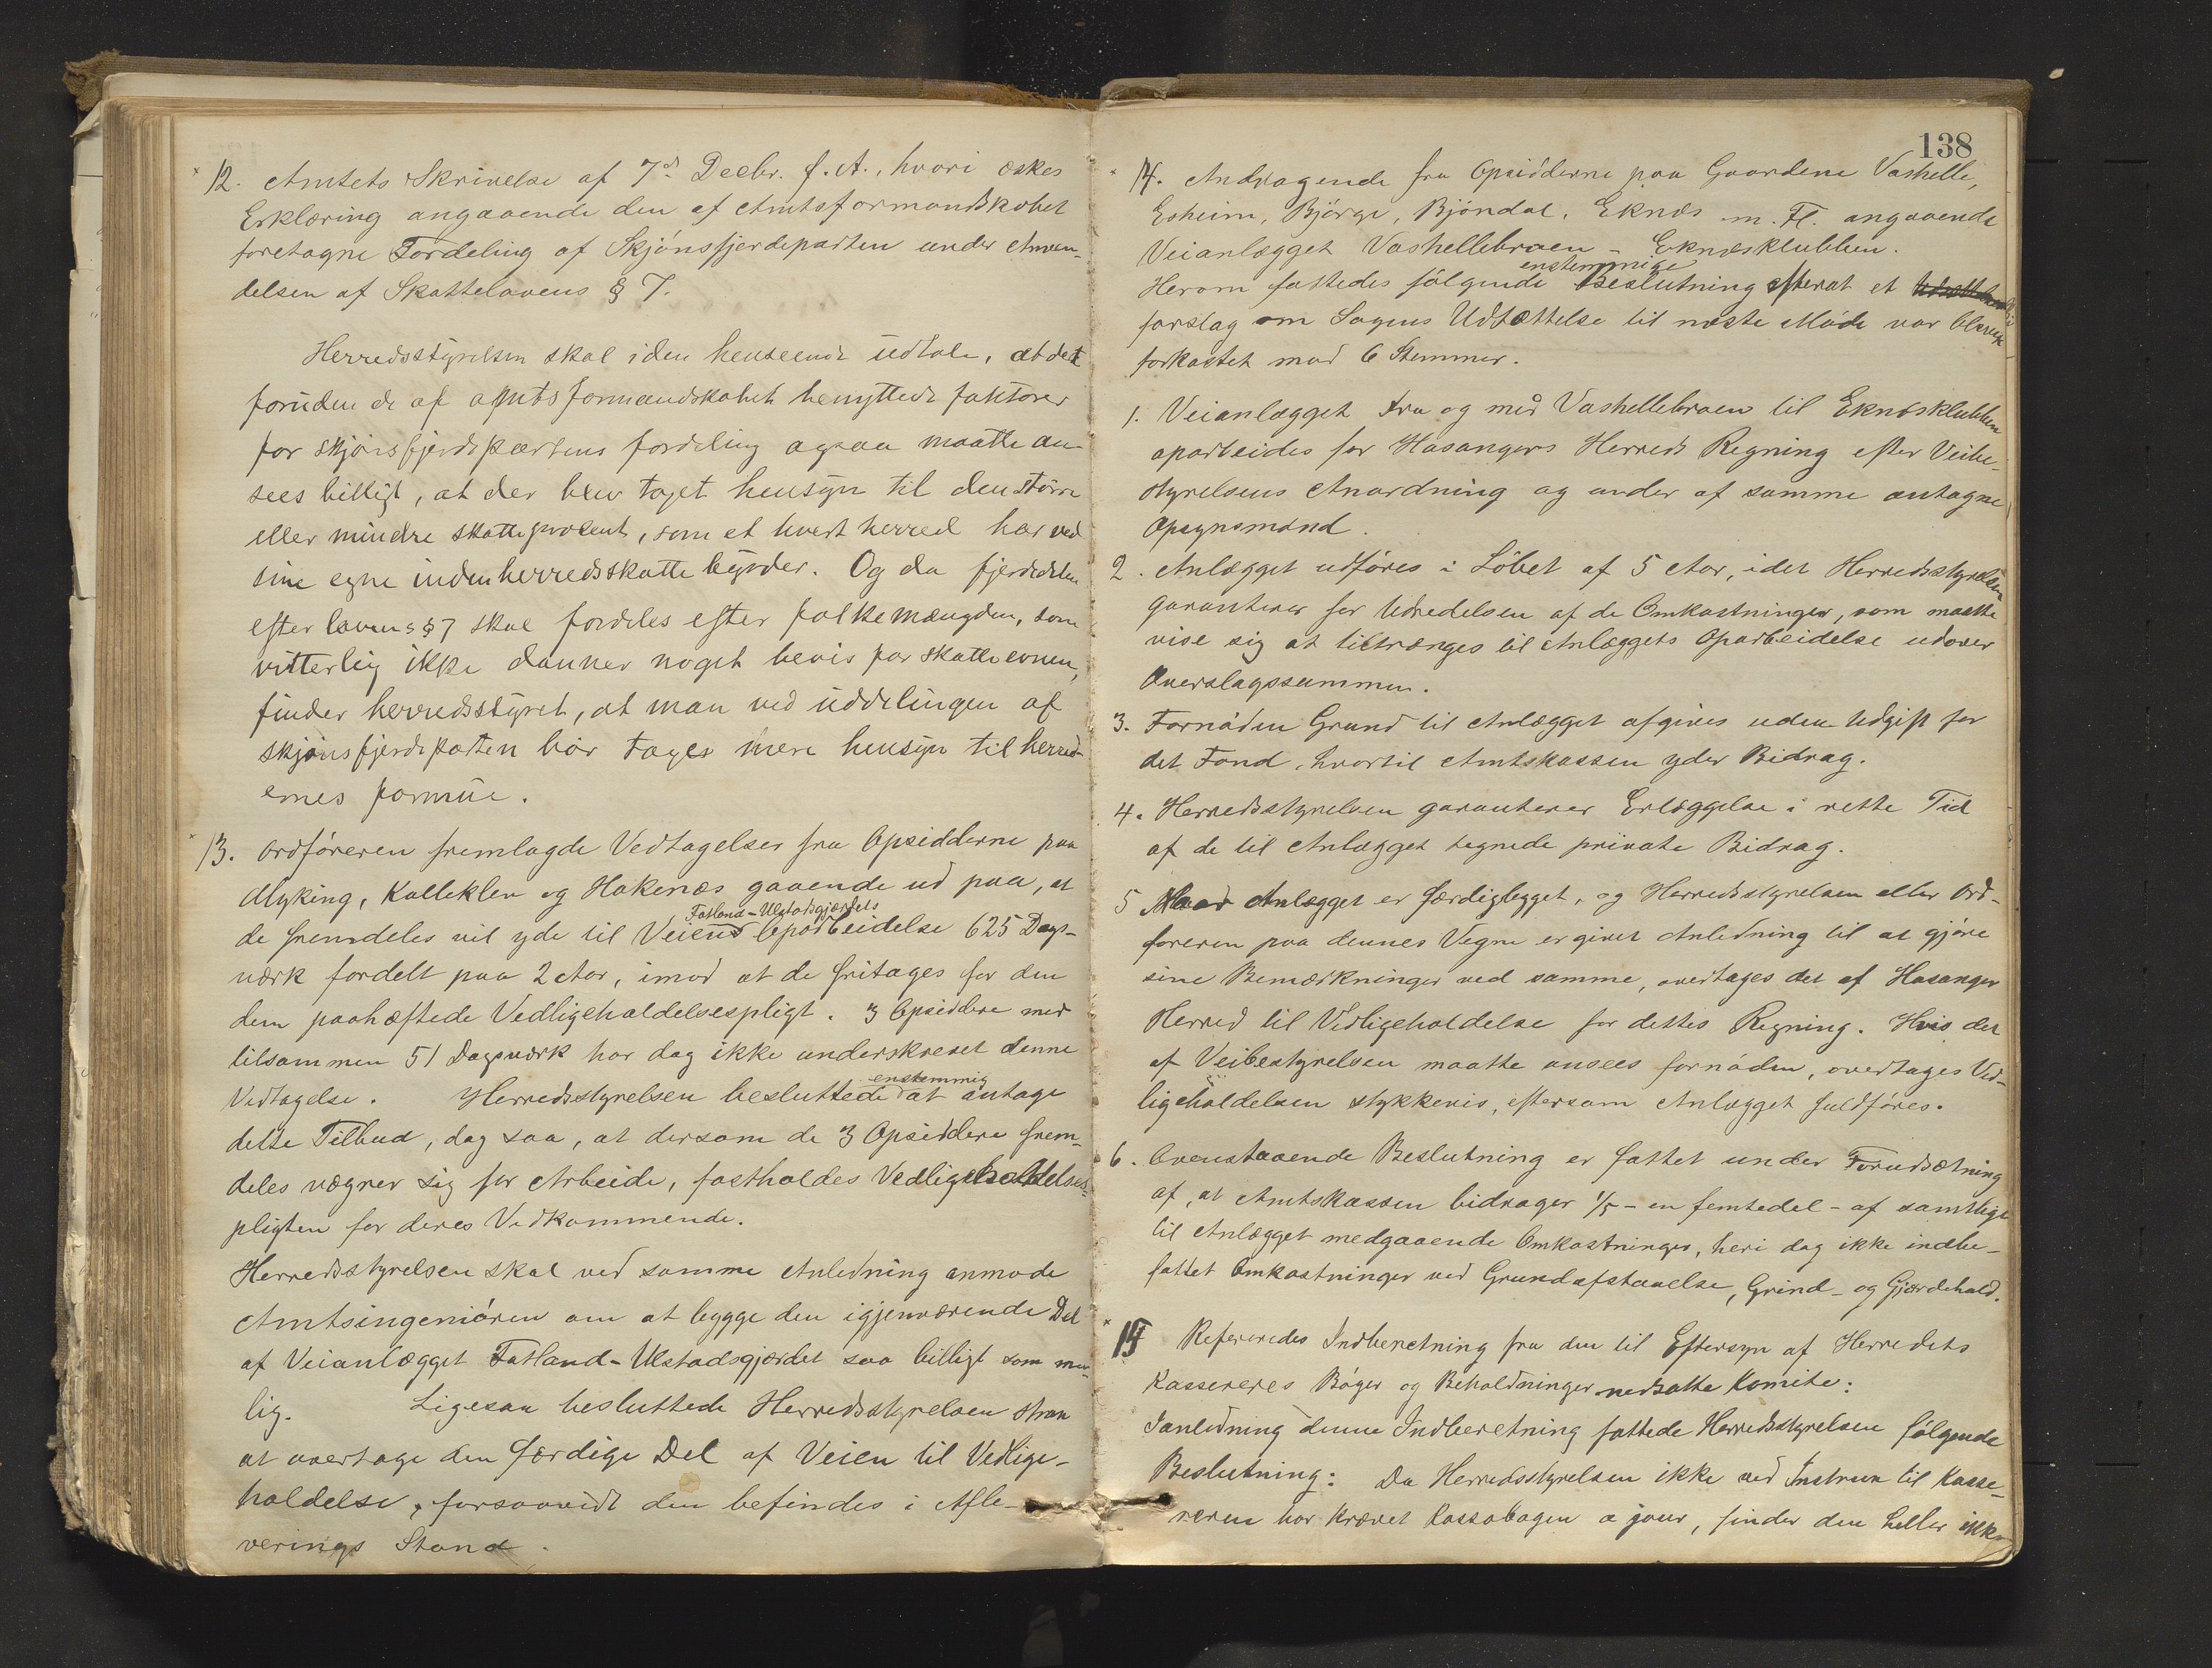 12. Amtets Skrivelse af 7de Decbr. f. A., hvori æskes
Erklæring angaaende den af Amtsformandskabet
foretagne Fordeling af Skjönsfjerdeparten under Anven-
delsen af Skattelovens § 7.
Herredsstyrelsen skal i den henseende udtale, at det
foruden de af amtsformandskabet benyttede faktorer
for skjönsfjerdepartens fordeling ogsaa maatte an-
sees billigt, at der blev taget hensyn til den större
eller mindre skatteprocent, som et hvert herred har ved
sine egne indenherredsskattebyrder. Og da fjerdedelen
efter lovens § 7 skal fordeles efter folkemængden, som
vitterlig ikke danner noget bevis for skatteevnen,
finder herredsstyret, at man ved uddelingen af
skjönsfjerdeparten bör tages mere hensyn til herred-
ernes formue.
13. Ordföreren fremlagde Vedtagelser fra Opsidderne paa
Myking, Kalleklev og Hakenæs gaaende ud paa, at
Fatland-Ulstadsgjærdets
de fremdeles vil yde til Veiens Oparbeidelse 625 Dags-
værk fordelt paa 2 Aar, imod at de fritages for den
dem paahæftede Vedligeholdelsespligt. 3 Opsiddere med
tilsammen 51 Dagsværk har dog ikke underskrevet denne
enstemmig
Vedtagelse. Herredsstyrelsen besluttede at antage
dette Tilbud, dog saa, at dersom de 3 Opsiddere frem-
deles vægrer sig for Arbeide, fastholdes Vedligeholdelses-
pligten for deres Vedkommende.
Herredsstyrelsen skal ved samme Anledning anmode
Amtsingeniören om at bygge den igjenværende Del
af Veianlægget Fatland-Ulstadsgjærdet saa billigt som mu-
lig. Ligesaa besluttede Herredsstyrelsen strax
at overtage den færdige Del af Veien til Vedlige-
holdelse, forsaavidt den befindes i Afle-
verings Stand.
138
14. Andragende fra Opsidderne paa Gaardene Vashelle,
Esheim, Björge, Bjöndal, Eknæs m. Fl. angaaende
Veianlægget Vashellebroen - Eknæsklubben.
enstemmige
Herom fattedes fölgende Beslutning efterat et
forslag om Sagens Udsættelse til næste Möde var blevet
forkastet mod 6 Stemmer.
1. Veianlægget fra og med Vashellebroen til Eknæsklubben
oparbeides for Hosangers Herreds Regning efter Veibe-
styrelsens Anordning og under af samme antagne
Opsynsmænd.
2. Anlægget udföres i Löbet af 5 Aar, idet Herredsstyrelsen
garanterer for Udredelsen af de Omkostninger, som maatte
vise sig at tiltrænges til Anlæggets Oparbeidelse udover
Overslagssummen.
3. Fornöden Grund til Anlægget afgives uden Udgift for
det Fond, hvortil Amtskassen yder Bidrag.
4. Herredsstyrelsen garanterer Erlæggelse i rette Tid
af de til Anlægget tegnede private Bidrag.
5 Naar Anlægget er færdigbygget, og Herredsstyrelsen eller Ord-
föreren paa dennes Vegne er givet Anledning til at gjöre
sine Bemærkninger ved samme, overtages det af Hosanger
Herred til Vedligeholdelse for dettes Regning. Hvis det
af Veibestyrelsen maatte ansees fornöden, overtages Ved-
ligeholdelsen stykkevis, eftersom Anlægget fuldföres.
6. Ovenstaaende Beslutning er fattet under Forudsætning
af, at Amtskassen bidrager 1/5 - en femtedel - af samtlige
til Anlægget medgaaende Omkostninger, heri dog ikke indbe-
fattet Omkostninger ved Grundafstaaelse, Grind- og Gjærdehold.
15 Refereredes Indberetning fra den til Eftersyn af Herredets
Kassereres Böger og Beholdninger nedsatte Komite:
Ianledning denne Indberetning fattede Herredsstyrelsen fölgende
Beslutning: Da Herredsstyrelsen ikke ved Instrux til Kasse-
reren har krævet Kassabogen a jour, finder den heller ikke